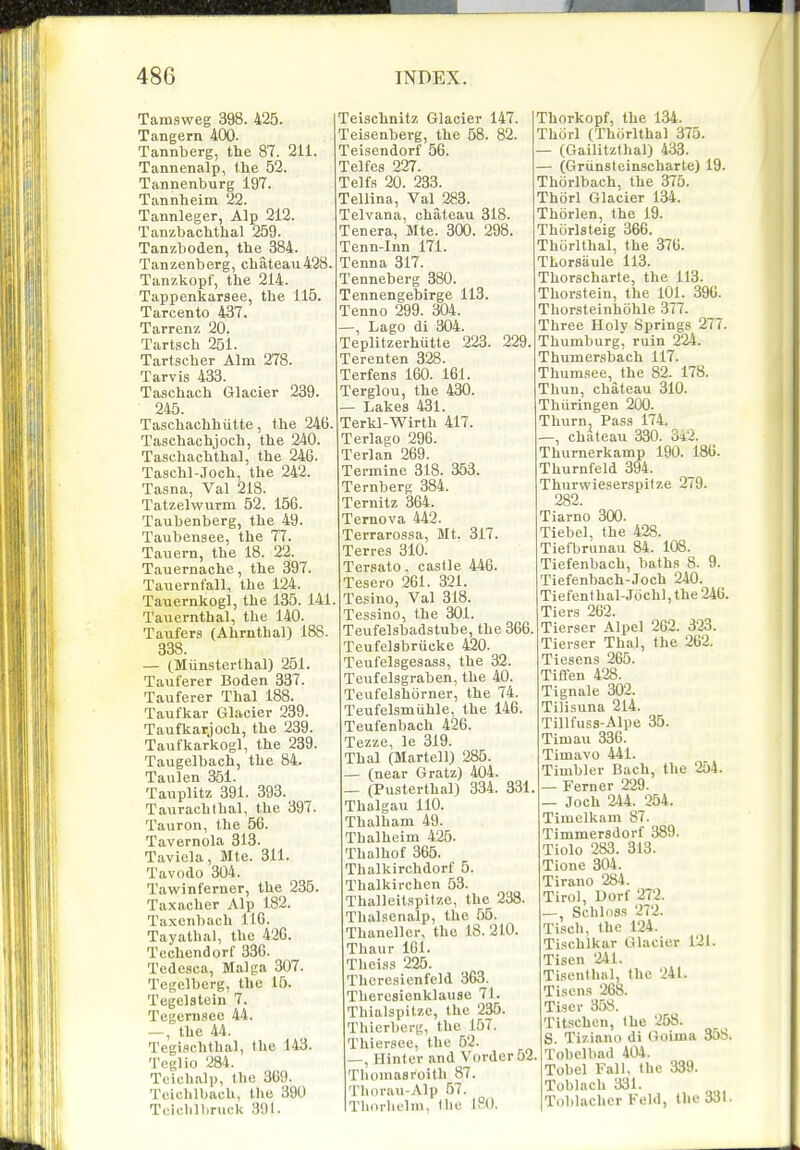 486 INDEX.
Tamsweg 398. 425.
Tangern 400.
Tannberg, the 87. 211.
Tannenalp, the 52.
Tannenburg 197.
Tannheim 22.
Tannleger, Alp 212.
Tanzbachthal 259.
Tanzboden, the 384.
Tanzenberg, château 428.
Tanzkopf, the 214.
Tappenkarsee, the 115.
Tarcento 437.
Tarrenz 20.
Tartsch 251.
Tartscher Alm 278.
Tarvis 433.
Taschach Glacier 239.
245.
Taschachhütte, the 246.
Taschachjoch, the 240.
Taschachthal, the 246.
Taschl-Joch, the 242.
Tasna, Val 218.
Tatzelwurm 52. 156.
Taubenberg, the 49.
Taubensee, the 77.
Tauern, the 18. 22.
Tauernache, the 397.
Tauernfall, the 124.
Tauernkogl, the 135. 141.
Tauernthal, the 140.
Taufers (Ahrnthal) 188.
338.
— (Münsterthal) 251.
Tauferer Boden 337.
Tauferer Thal 188.
Taufkar Glacier 239.
Taufkarjoch, the 239.
Taufkarkogl, the 239.
Taugelbach, the 84.
Taulen 351.
Tauplitz 391. 393.
Taurachthal, the 397.
Tauron, the 56.
Tavernola 313.
Taviela, Mte. 311.
Tavodo 304.
Tawinferner, the 235.
Taxacher Alp 182.
Taxenbach 116.
Tayathal, the 426.
Techendorf 336.
Tedesca, Malga 307.
Tegelberg, the 15.
Tegelstein 7.
Tegernsee 44.
—, the 44.
Tegischthal, the 143.
Teglio 284.
Teichalp, the 369.
Teichlbach, the 390
Teichlbruck 391.
Teischnitz Glacier 147.
Teisenberg, the 58. 82.
Teisendorf 56.
Telfes 227.
Telfs 20. 233.
Tellina, Val 283.
Telvana, château 318.
Tenera, Mte. 300. 298.
Tenn-Inn 171.
Tenna 317.
Tenneberg 380.
Tennengebirge 113.
Tenno 299. 304.
—, Lago di 304.
Teplitzerhütte 223. 229.
Terenten 328.
Terfens 160. 161.
Terglou, the 430.
— Lakes 431.
Terkl-Wirth 417.
Terlago 296.
Terlan 269.
Termine 318. 353.
Ternberg 384.
Ternitz 364.
Ternova 442.
Terrarossa, Mt. 317.
Terres 310.
Tersato, castle 446.
Tesero 261. 321.
Tesino, Val 318.
Tessino, the 301.
Teufelsbadstube, the 366.
Teufelsbrücke 420.
Teufelsgesass, the 32.
Teufelsgraben, the 40.
Teufelshörner, the 74.
Teufelsmühle, the 146.
Teufenbach 426.
Tezze, le 319.
Thal (Martell) 285.
— (near Gratz) 404.
— (Pusterthal) 334. 331.
Thalgau 110.
Thalham 49.
Thalheim 425.
Thalhof 365.
Thalkirchdorf 5.
Thalkirchen 53.
Thalleitspitze, the 238.
Thalsenalp, the 55.
Thaneller, the 18. 210.
Thaur 161.
Theiss 225.
Theresienfeld 363.
Theresienklause 71.
Thialspitze, the 235.
Thierberg, the 157.
Thiersee, the 52.
—, Hinter and Vorder 52.
Thomasroith 87.
Thorau-Alp 57.
Thorhelm, the 180.
Thorkopf, the 134.
Thörl (Thörlthal 375.
— (Gailitzthal) 433.
— (Grünsteinscharte) 19.
Thörlbach, the 375.
Thörl Glacier 134.
Thörlen, the 19.
Thörlsteig 366.
Thörlthal, the 376.
Thorsäule 113.
Thorscharte, the 113.
Thorstein, the 101. 396.
Thorsteinhöhle 377.
Three Holy Springs 277.
Thumburg, ruin 224.
Thumersbach 117.
Thumsee, the 82. 178.
Thun, château 310.
Thüringen 200.
Thurn, Pass 174.
—, château 330. 342.
Thurnerkamp 190. 186.
Thurnfeld 394.
Thurwieserspitze 279.
282.
Tiarno 300.
Tiebel, the 428.
Tiefbrunau 84. 108.
Tiefenbach, baths 8. 9.
Tiefenbach-Joch 240.
Tiefenthal-Jöchl, the 246.
Tiers 262.
Tierser Alpel 262. 323.
Tierser Thal, the 262.
Tiesens 265.
Tiffen 428.
Tignale 302.
Tilisuna 214.
Tillfuss-Alpe 35.
Timau 336.
Timavo 441.
Timbler Bach, the 254.
— Ferner 229.
— Joch 244. 254.
Timelkam 87.
Timmersdorf 389.
Tiolo 283. 313.
Tione 304.
Tirano 284.
Tirol, Dorf 272.
—, Schloss 272.
Tisch, the 124.
Tischlkar Glacier 121.
Tisen 241.
Tisenthal, the 241.
Tisens 268.
Tiser 358.
Titschen, the 258.
S. Tiziano di Goima 358.
Tobelbad 404.
Tobel Fall, the 339.
Toblach 331.
Toblacher Feld, the 331.